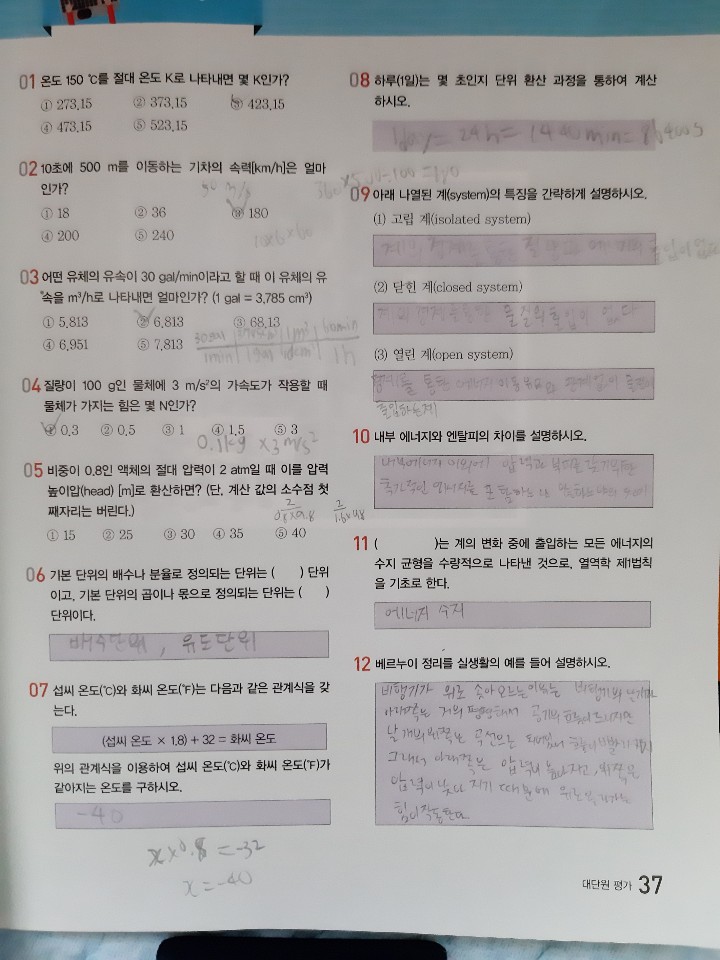 01 온도 150 ℃를 절대 온도 K로 나타내면 몇 K인가?
① 273.15 ② 373.15 ③ 423.15
④ 473.15 ⑤ 523.15
02 10초에 500 m를 이동하는 기차의 속력[km/h]은 얼마
인가?
50 m/s
① 18 ② 36 ③ 180
④ 200 ⑤ 240
03 어떤 유체의 유속이 30 gal/min이라고 할 때 이 유체의 유
속을 m³/h로 나타내면 얼마인가? (1 gal = 3,785 cm³)
① 5.813 ② 6.813 ③ 68.13
④ 6.951 ⑤ 7.813
30gal 1m³ 60min
1min 1gal 1h
04 질량이 100 g인 물체에 3 m/s²의 가속도가 작용할 때
물체가 가지는 힘은 몇 N인가?
① 0.3 ② 0.5 ③ 1 ④ 1.5 ⑤ 3
0.1kg × 3 m/s²
05 비중이 0.8인 액체의 절대 압력이 2 atm일 때 이를 압력
높이압(head) [m]로 환산하면? (단, 계산 값의 소수점 첫
째자리는 버린다.)
① 15 ② 25 ③ 30 ④ 35 ⑤ 40
06 기본 단위의 배수나 분율로 정의되는 단위는 ( ) 단위
이고, 기본 단위의 곱이나 몫으로 정의되는 단위는 ( )
단위이다.
배수단위, 유도단위
07 섭씨 온도(℃)와 화씨 온도(℉)는 다음과 같은 관계식을 갖
는다.
(섭씨 온도 × 1.8) + 32 = 화씨 온도
위의 관계식을 이용하여 섭씨 온도(℃)와 화씨 온도(℉)가
같아지는 온도를 구하시오.
-40
x × 0.8 = -32
x = -40
08 하루(1일)는 몇 초인지 단위 환산 과정을 통하여 계산
하시오.
1day = 24h = 1440min = 86400s
09 아래 나열된 계(system)의 특징을 간략하게 설명하시오.
(1) 고립 계(isolated system)
(2) 닫힌 계(closed system)
계의 경계를 통한 물질의 출입이 없다
(3) 열린 계(open system)
출입하는 계
10 내부 에너지와 엔탈피의 차이를 설명하시오.
11 ( )는 계의 변화 중에 출입하는 모든 에너지의
수지 균형을 수량적으로 나타낸 것으로, 열역학 제1법칙
을 기초로 한다.
에너지 수지
12 베르누이 정리를 실생활의 예를 들어 설명하시오.
비행기가 위로 솟아오르는 이유는 비행기의 날개의
아래쪽은 거의 평평해서 공기의
날개의 위쪽은 곡선으로 되어있어
그래서 아래쪽은 압력이 높아지고, 위쪽은
압력이 낮아지기 때문에 위로
힘이 작용한다
대단원 평가 37